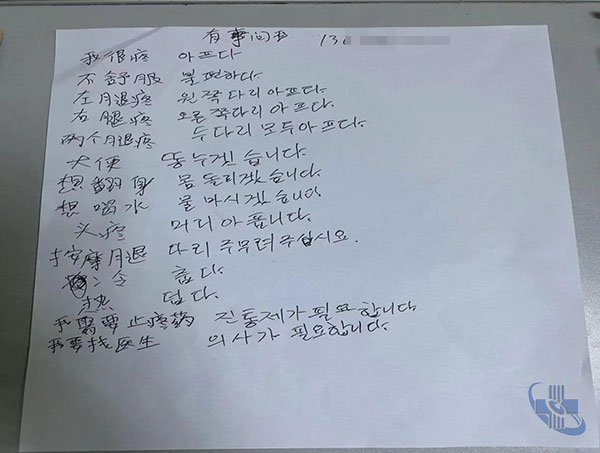 有事问我 132
我很疼 아프다
不舒服 불편하다.
左月退疼 왼쪽다리아프다.
右腿疼 오른쪽다리아프다.
两个月退疼 두다리모두아프다.
大便 똥누겟습니다.
想翻身 몸돌리겠습니다.
想喝水 물마시겠습니다.
头疼 머디아픕니다.
按摩月退 다리주무려주십시요.
冷 춥다.
热 덥다.
我需要止疼药 진통제가필요합니다
我要找医生 의사가필요합니다.